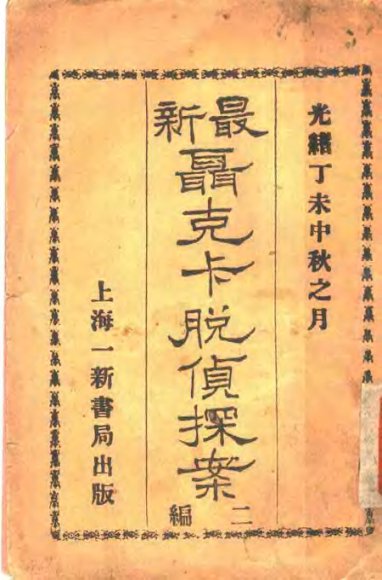 光緒丁未中秋之月
最新
聶克卡脫偵探案
二編
上海一新書局出版